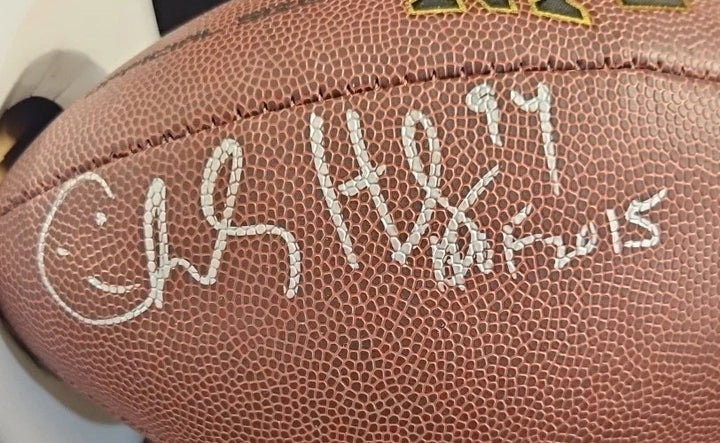 Charles Haley 94
HOF 2015